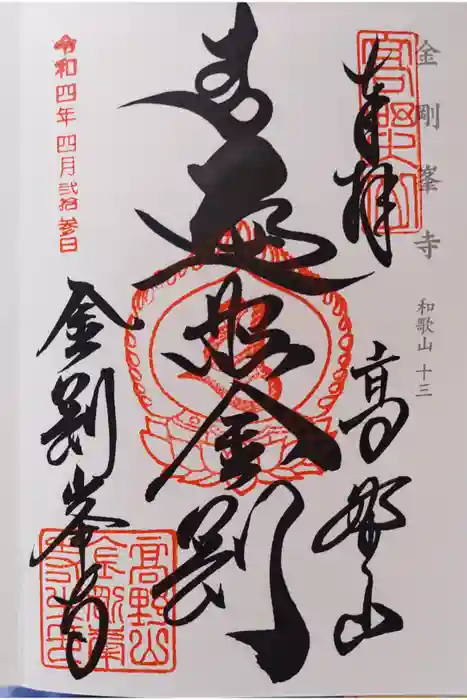 金剛峯寺
和歌山 十三
奉拝
高野山
遍照金剛
金剛峯寺
令和四年四月弐拾参日
高野山
金剛峯